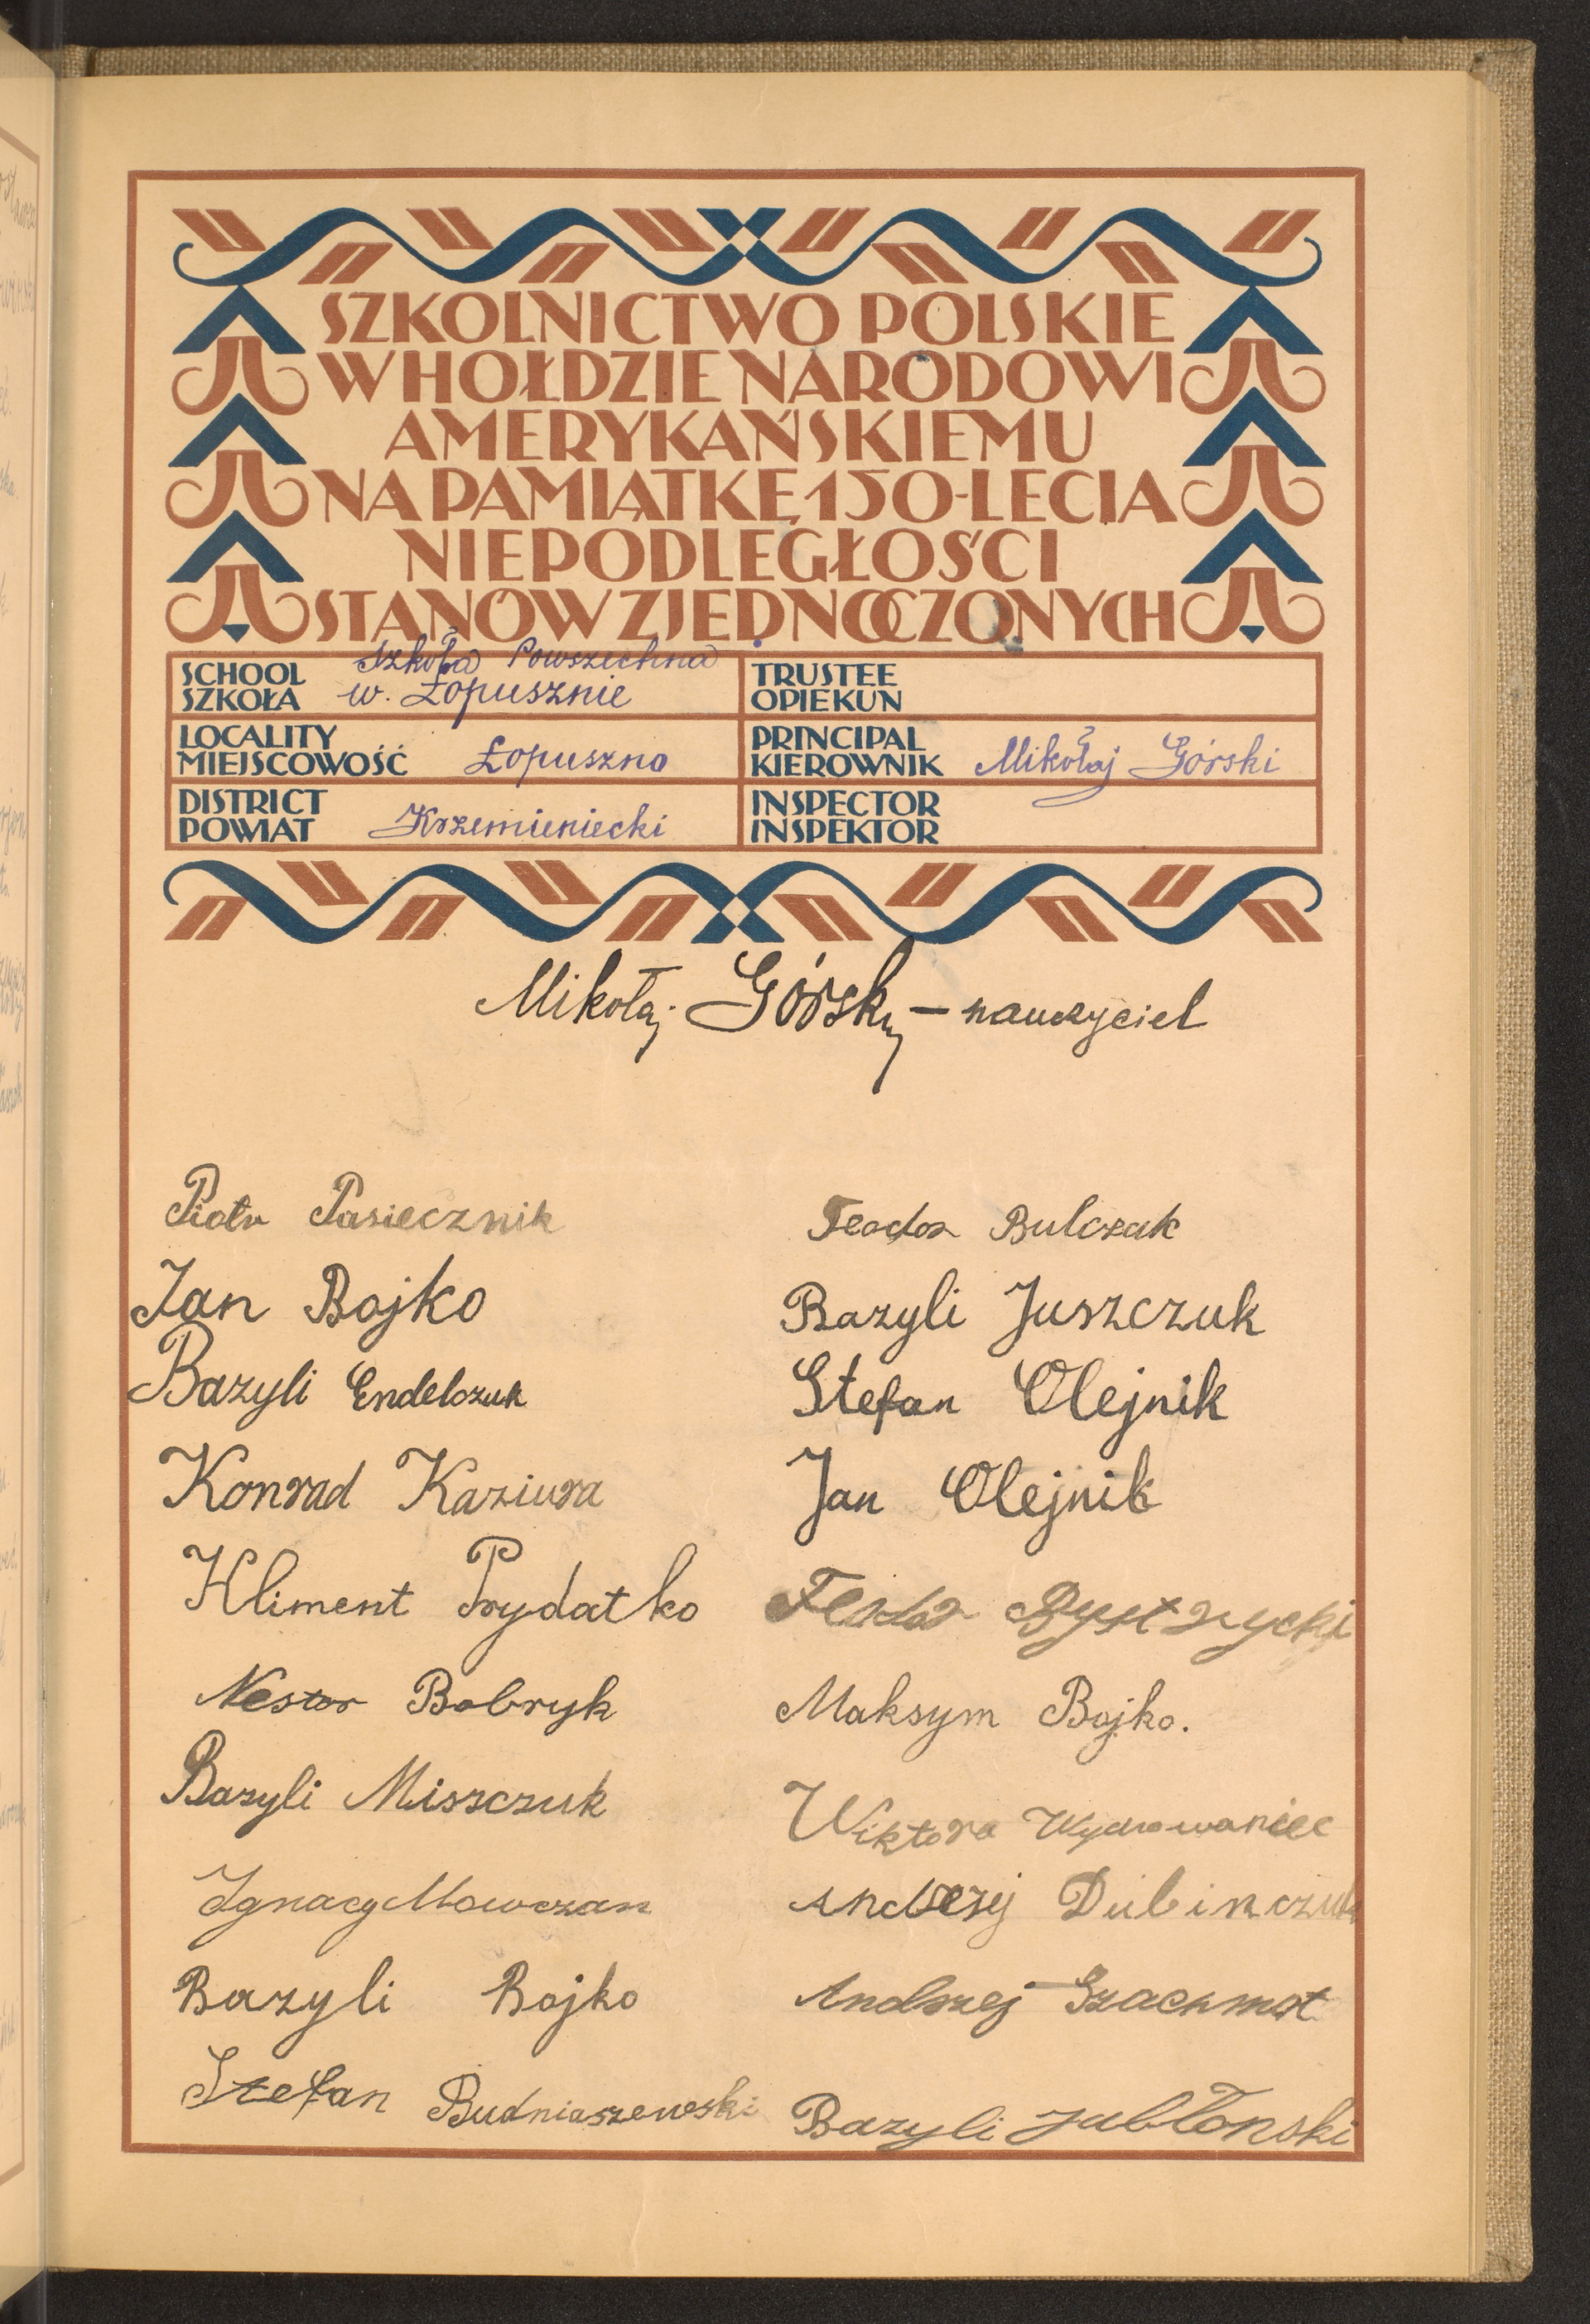 SZKOLNICTWO POLSKIE
W HOŁDZIE NARODOWI
AMERYKAŃSKIEMU
NA PAMIĄTKĘ 150-LECIA
NIEPODLEGŁOŚCI
STANÓW ZJEDNOCZONYCH
SCHOOL
SZKOŁA
Szkoła Powszechna
w. Łopusznie
TRUSTEE
OPIEKUN
LOCALITY
MIEJSCOWOŚĆ Łopuszno
PRINCIPAL
KIEROWNIK Mikołaj Górski
DISTRICT
POWIAT Krzemieniecki
INSPECTOR
INSPEKTOR
Mikołaj Górski – nauczyciel
Piotr Pasiecznik
Jan Bojko
Bazyli Endelczuk
Konrad Kaziura
Kliment Prydatko
Nestor Bobryk
Bazyli Miszczuk
Ignacy Mowczan
Bazyli Bojko
Stefan Budniaszewski
Teodor Bulczak
Bazyli Juszczuk
Stefan Olejnik
Jan Olejnik
Teodor Bystrzycki
Maksym Bojko.
Wiktora Wydrowaniec
Andrzej Dubinczuk
Andrzej Szachmat
Bazyli Jabłonski